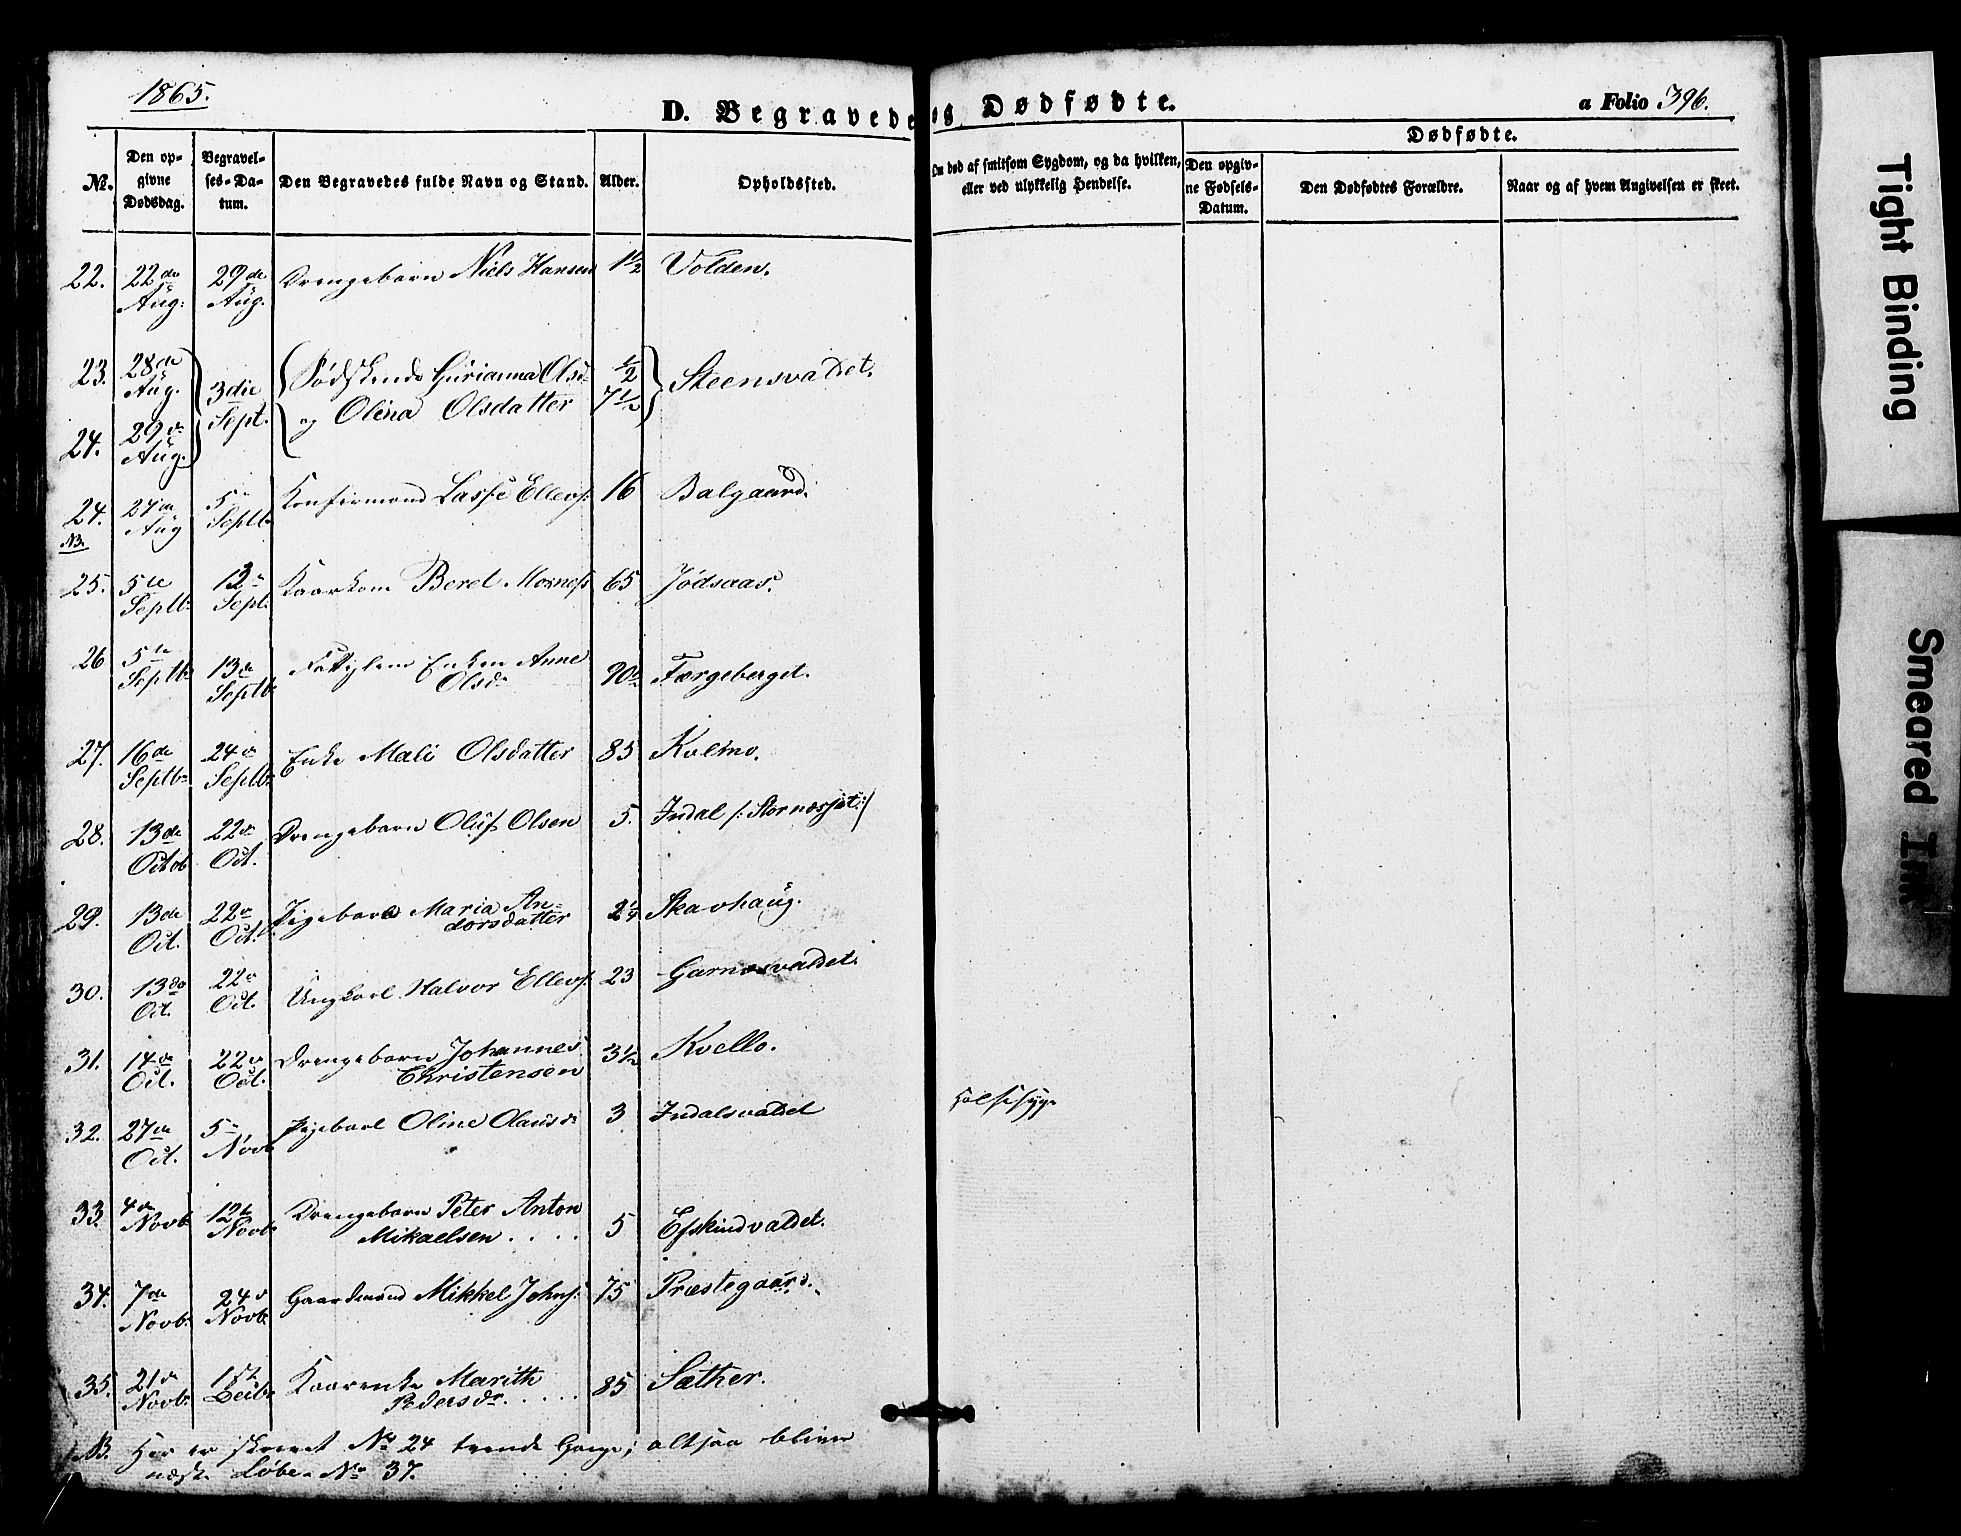 1865.
D. Begravede og Dødfødte.
a Folio 396.
Dødfødte.
No. Den opgivne Dødsdag. Begravelses-Datum. Den Begravedes fulde Navn og Stand. Alder. Opholdssted. Om død af smitsom Sygdom, og da hvilken, eller ved ulykkelig Hendelse. Den opgivne Fødsels-Datum. Den Dødfødtes Forældre. Naar og af hvem Angivelsen er skeet.
22. 22de Aug: 29de Aug. Drengebarn Niels Hansen 1½ Volden.
23. 28de Aug. 3die Sept. Sødskende Gurianna Olsd. ½ Steensvaldet.
24. 29de Aug. og Olina Olsdatter 7½
24. 27de Aug 5te Septb. Konfirmand Lasse Ellevs: 16 Balgaard.
NB.
25. 5te Septb. 13de Sept. Beret 65 Jødsaas.
26 5te Septb. 13de Septb. Enken Anne Olsd. 90 Færgeberget.
27. 16de Septbr 24de Septbr Enke Mali Olsdatter 85 Kolmo.
28. 13de Octob 22de Oct. Drengebarn Oluf Olsen 5. Indal /: Stornæsset :/
29. 13de Oct. 22de Oct. Pigebarn Maria Andorsdatter 2¼ Skavhaug.
30. 13de Oct. 22de Oct. Ungkarl Halvor Ellevs. 23 Garnæsvaldet.
31. 14de Oct. 22de Oct. Drengebarn Johannes Christensen 3½ Kvello.
32. 27de Oct. 5te Novb Pigebarn Oline Olausd. 3 Indalsvaldet Halssyge
33. 4de Novb. 12te Novb. Drengebarn Peter Anton Mikaelsen . . . . 5 Efskindvaldet.
34. 7de Novb. 24de Novb. Gaardmand Mikkel Johns. 75 Præstegaard.
35. 21de Novb. 1ste Decb. Kaarenke Marith Pedersdr. . . . 85 Sæther.
NB. Her er skrevet No 24 tvende Gange; altsaa bliver
næste Løbe-No 37.
Tight Binding
Smeared Ink